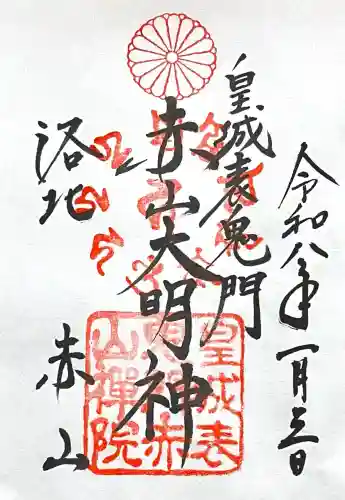 令和八年一月三日
皇城表鬼門
赤山大明神
洛北 赤山
皇城表
鬼門赤
山禅院